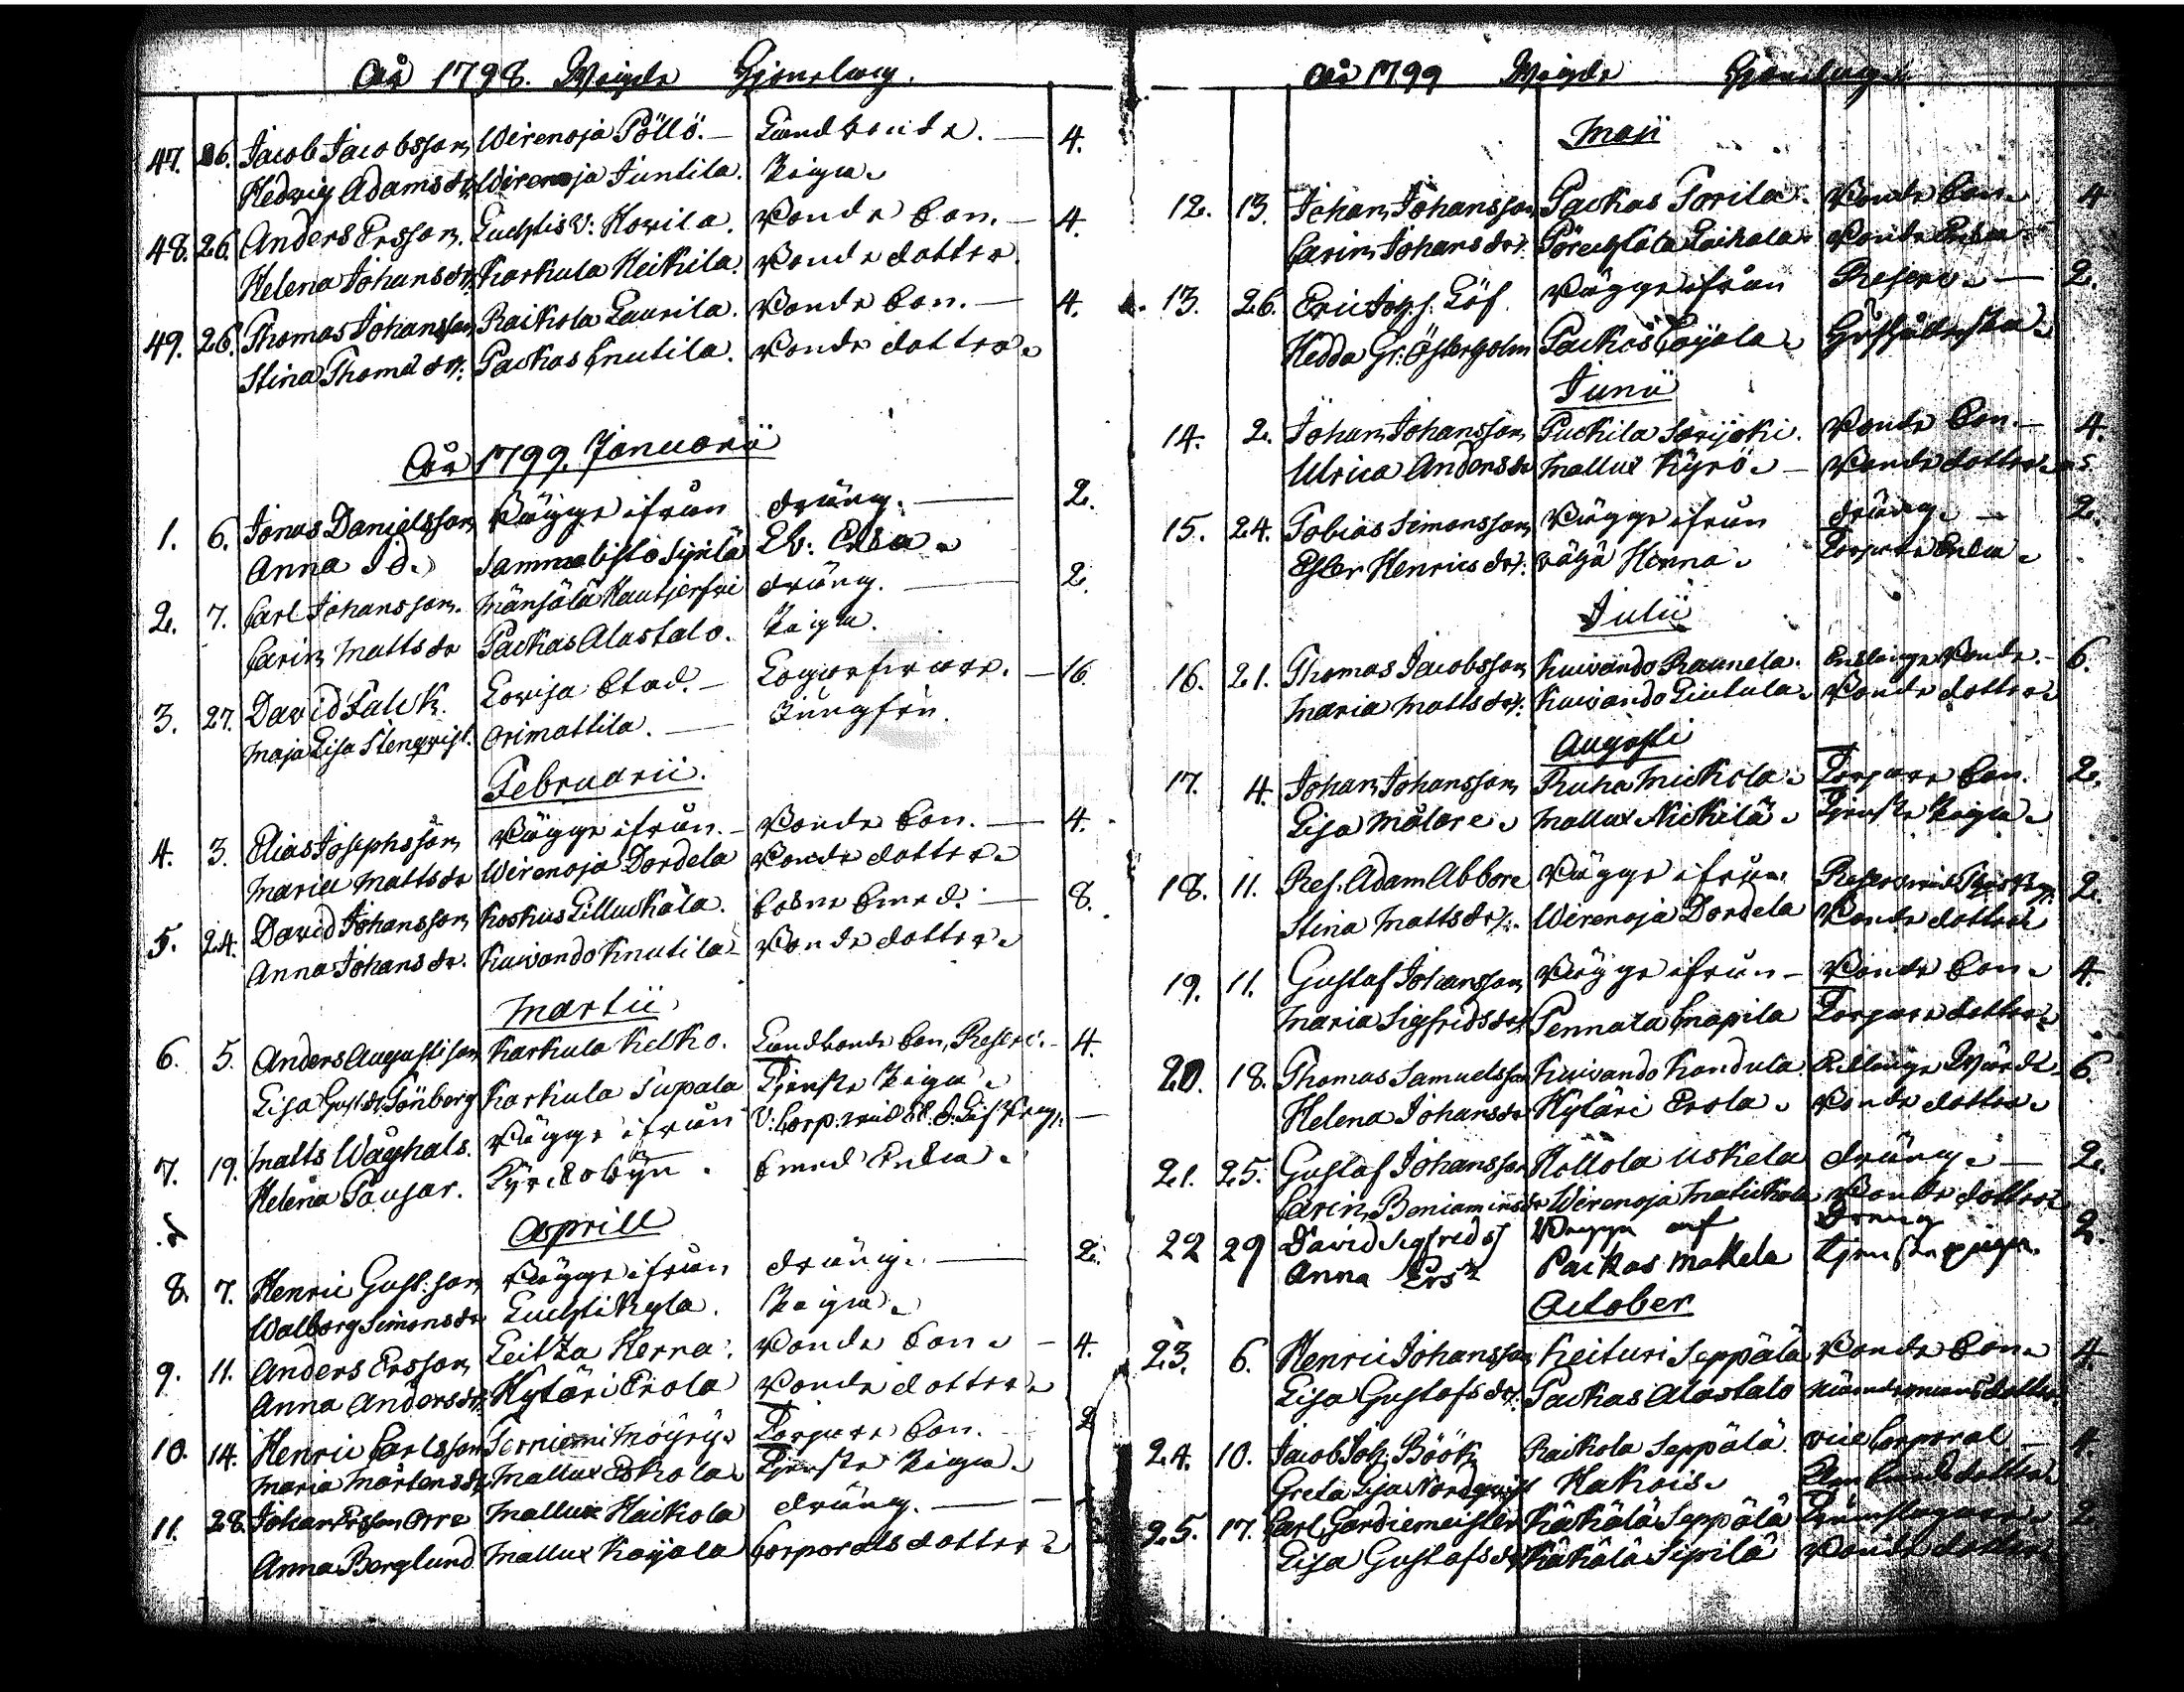 År 1798. Wigde Hjonelag.
47. 26. Jacob Jacobsson Wirenoja Pöllö. Landbonde. 4.
Hedvig Adamsdr Wirenoja Juntila. Piga.
48. 26. Anders Ersson. Luchtis v: Hovila. Bonde Son. 4.
Helena Johansdr. Karkula Heikila. Bonde dotter.
49. 26. Thomas Johansson Raikola Laurila. Bonde Son. 4.
Stina Thomædr. Packas Cnutila. Bonde dotter.
År 1799. Januarii
1. 6. Jonas Danielsson Bägge ifrån dräng. 2.
Anna Jd. Sammalisto Sipilä Enka
2. 7. Carl Johansson. Mänsälä dräng. 2.
Carin Mattsdr Packas Alastalo. Piga.
3. 27. David Falck. Lovisa Stad. 16.
Maja Lisa Stenqvist. Orimattila. Jungfru.
Februarii.
4. 3. Elias Josephsson Bägge ifrån. Bonde Son. 4.
Maria Mattsdr Wirenoja Dordela Bonde dotter
5. 24. David Johansson Koskus Lilluckala. Smed. 8.
Anna Johansdr. Kuivando Knutila Bonde dotter
Martii
6. 5. Anders Augustison Karkula Kelko. Landbonde Son, Reserv. 4.
Lisa Gust.dr. Tönberg Karkula Supala Tjenste Piga
7. 19. Matts Waghals. Bägge ifrån V: Corp. vid
Helena Pausar. Kyrckobyn. Smed Enka
Aprill
8. 7. Henric Gust.son Bägge ifrån dräng. 2.
Walborg Simonsdr Luchtikyla. Piga
9. 11. Anders Ersson Leitza Herra. Bonde Son 4.
Anna Andersdr. Hytäri Erola Bonde dotter
10. 14. Henric Carlsson Terniemi Möyry Torpare Son. 2
Maria Mårtensdr Mallux Eskola Tjenste Piga
11. 28. Johan Ersson Orre Mallux Haikola dräng.
Anna Berglund Mallux Kojola Corporals dotter
År 1799 Wigde Hjonelag
Maji
12. 13. Johan Johansson Packas Torila. Bonde Son 4
Carin Johansdr. Laikala Bonde Enka
13. 26. Eric Jos.s. Löf. Bägge ifrån Reserv 2.
Hedda Gr: Österholm Packas Cojola
Junii
14. 2. Johan Johansson Puckila Sorijoki. Bonde Son 4.
Ulrica Andersdr Mallux Kyrö Bonde dotter
15. 24. Tobias Simonsson Bägge ifrån dräng 2.
Ester Henricsdr. Herra Torpare Enka
Julii
16. 21. Thomas Jacobsson Kuivando Raunela. Enklinge Bonde. 6.
Maria Mattsdr. Kuivando Liutula Bonde dotter
Augusti
17. 4. Johan Johansson Ruha Mickola Torpare Son. 2.
Lisa Målare Mallux Nickilä Tjenste Piga
18. 11. Res. Adam Abbore Bägge ifrån 2.
Stina Mattsdr. Wirenoja Dordela Bonde dotter
19. 11. Gustaf Johansson Bägge ifrån Bonde Son 4.
Maria Sigfridsdr Pennala Cnapila Torpare dotter
20. 18. Thomas Samuelsson Kuivando Kandula 6.
Helena Johansdr Hytäri Erola Bonde dotter
21. 25. Gustaf Johansson Hollola Uskela dräng 2.
Carin Beniaminsdr Wirenoja Matickala Bonde dotter
22 29 David Sigfreds Begge af Dreng 2.
Anna Ers Packas Makela tjenste piga.
October
23. 6. Henric Johansson Keituri Seppälä Bonde Son 4.
Lisa Gustafsdr. Packas Alastalo dotter
24. 10. Jacob Joh. Böök Raikola Seppälä vice Corporal 4.
Greta Lisa Nordqvist Hakois dotter
25. 17. Carl Gardiemeister Käkälä Seppälä 2
Lisa Gustafsdr Käkälä Sipilä Bonde dotter